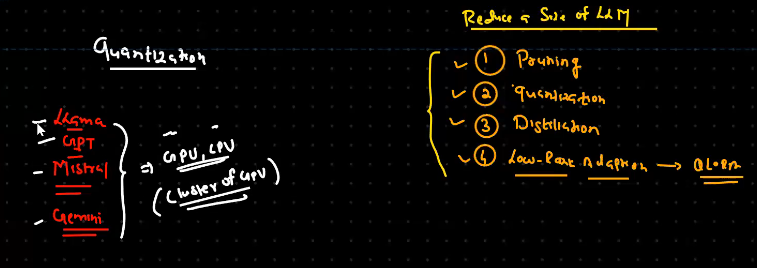 Quantization
LLama
GPT
Mistral
Gemini
=> GPU, CPU
(Cluster of GPU)
Reduce a Size of LLM
1 Pruning
2 Quantization
3 Distillation
4 Low-Rank Adaption → QLoRA